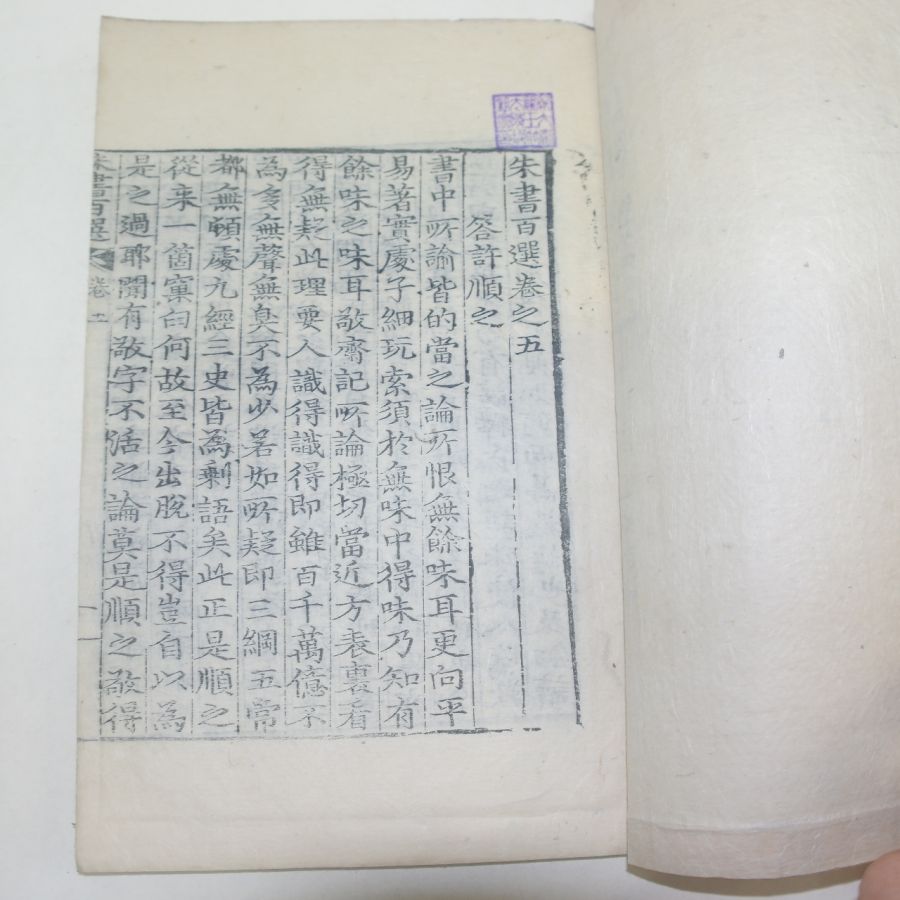 朱書百選卷之五
答許順之
書中所論皆的當之論所恨無餘味耳更向平
易著實處子細玩索須於無味中得味乃知有
餘味之味耳敬齋記所論極切當近方表裏看
得無疑此理要人識得識得即雖百千萬億不
為多無聲無臭不為少若如所疑即三綱五常
都無頓處九經三史皆為剩語矣此正是順之
從來一箇窠臼何故至今出脫不得豈自以為
是之過耶聞有敬字不活之論莫是順之敬得
朱書百選 卷